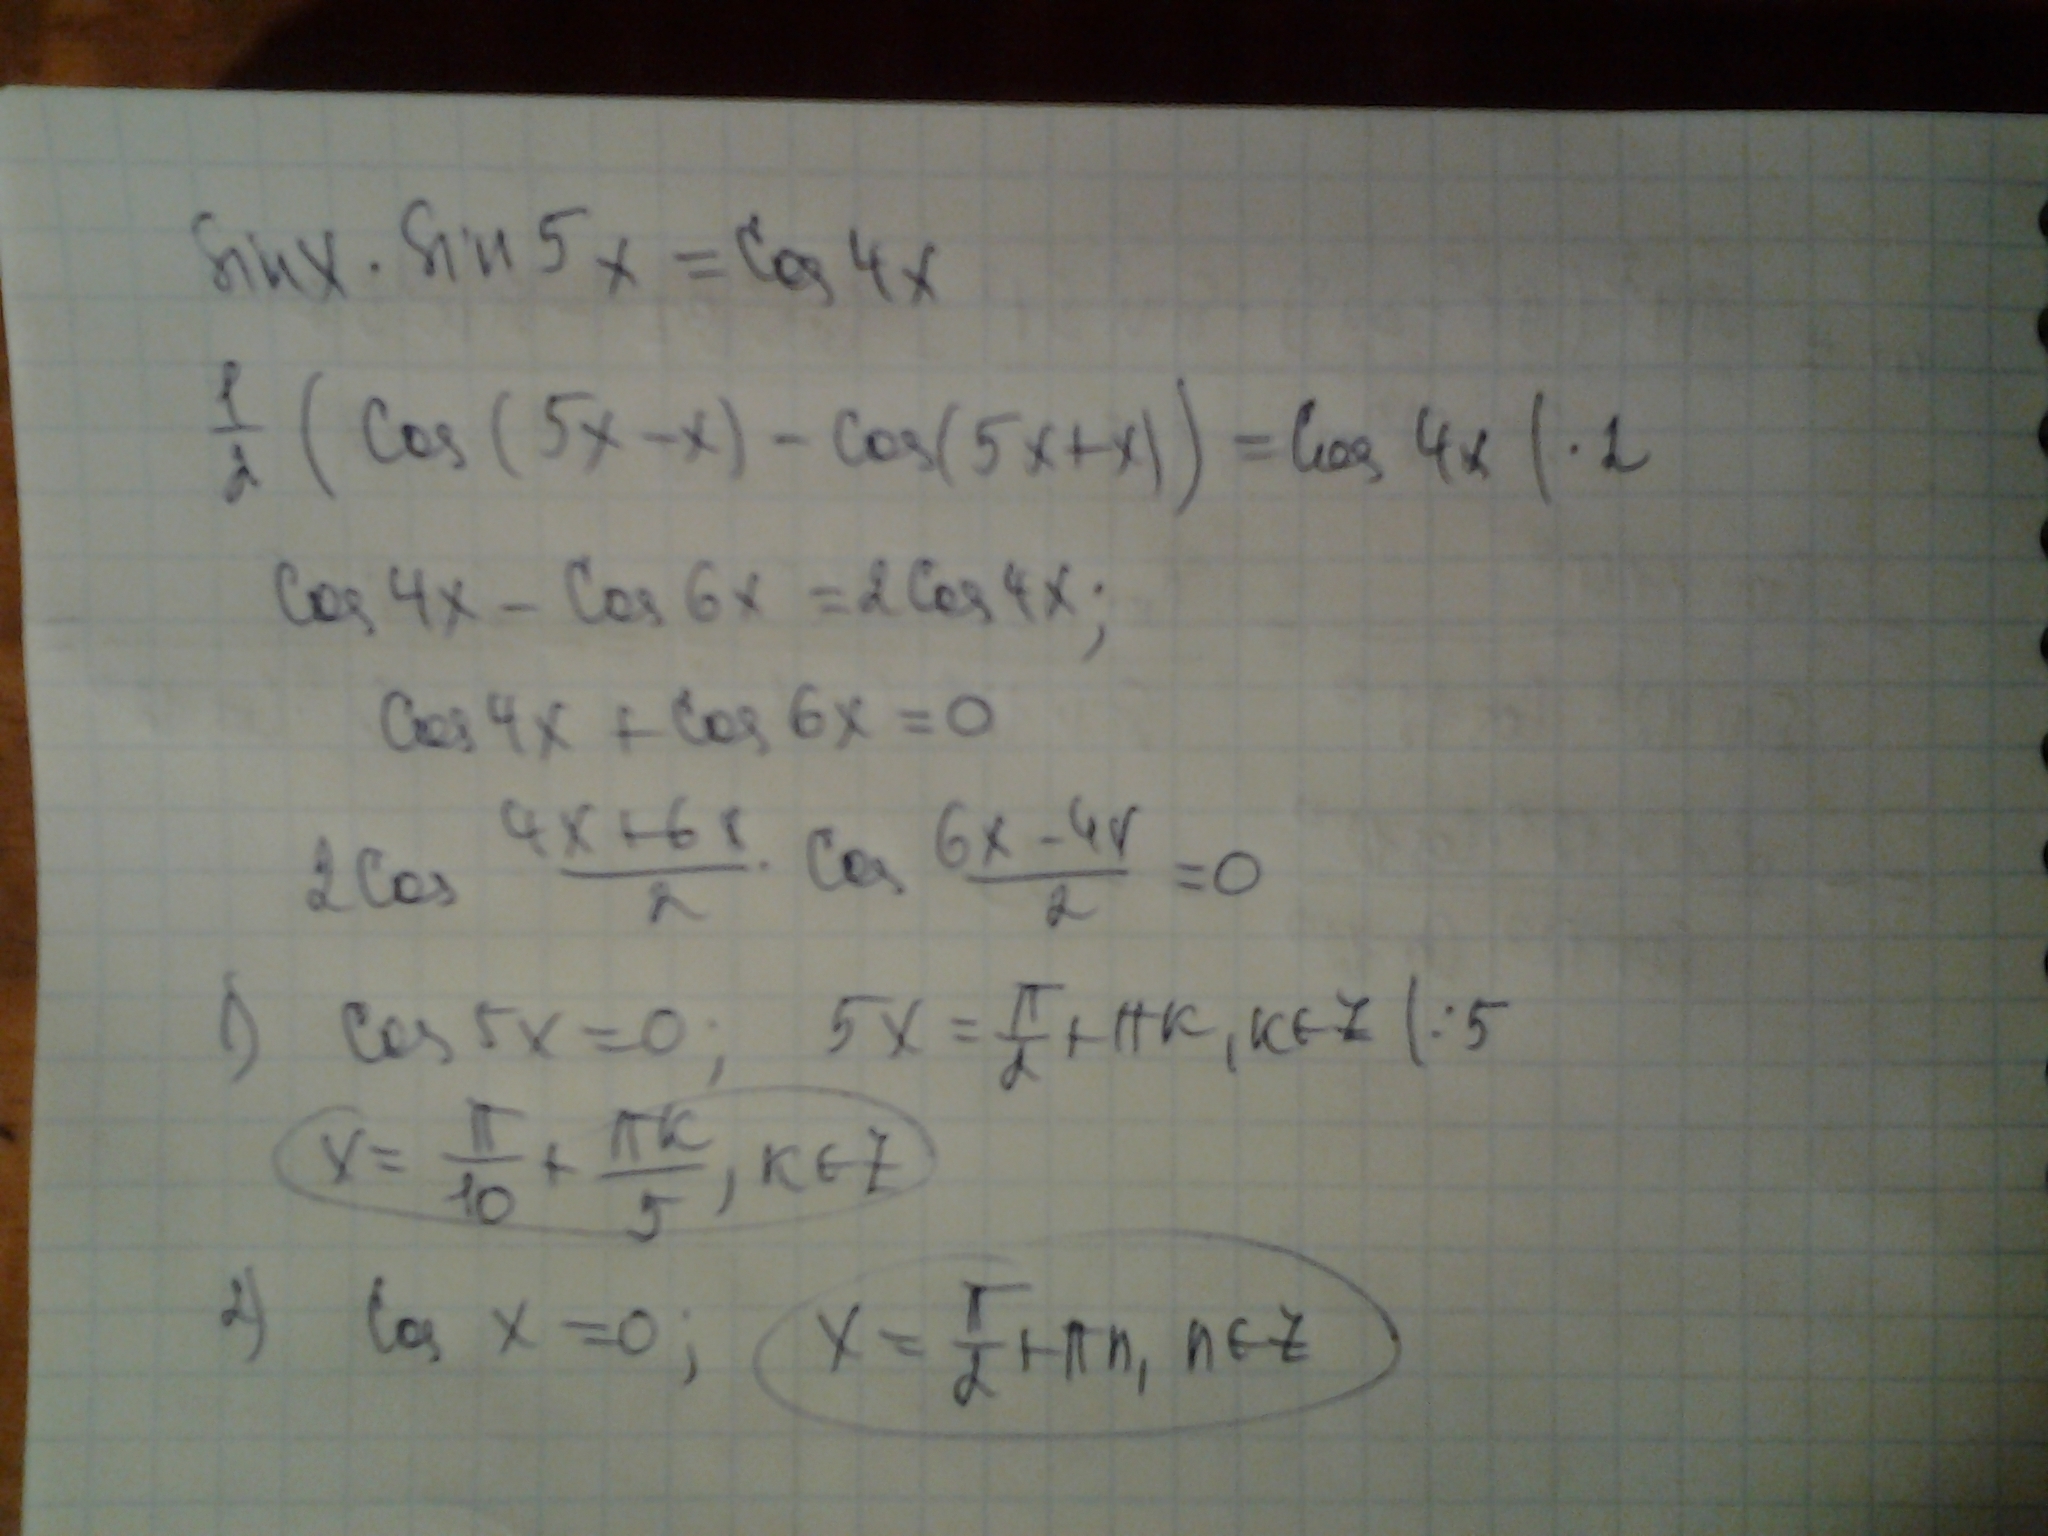 sin x · sin 5x = cos 4x
1/2 ( cos (5x - x) - cos(5x + x)) = cos 4x | · 2
cos 4x - cos 6x = 2 cos 4x;
cos 4x + cos 6x = 0
2 cos (4x + 6x)/2 · cos (6x - 4x)/2 = 0
1) cos 5x = 0; 5x = π/2 + πk, k ∈ Z | : 5
x = π/10 + πk/5, k ∈ Z
2) cos x = 0; x = π/2 + πn, n ∈ Z